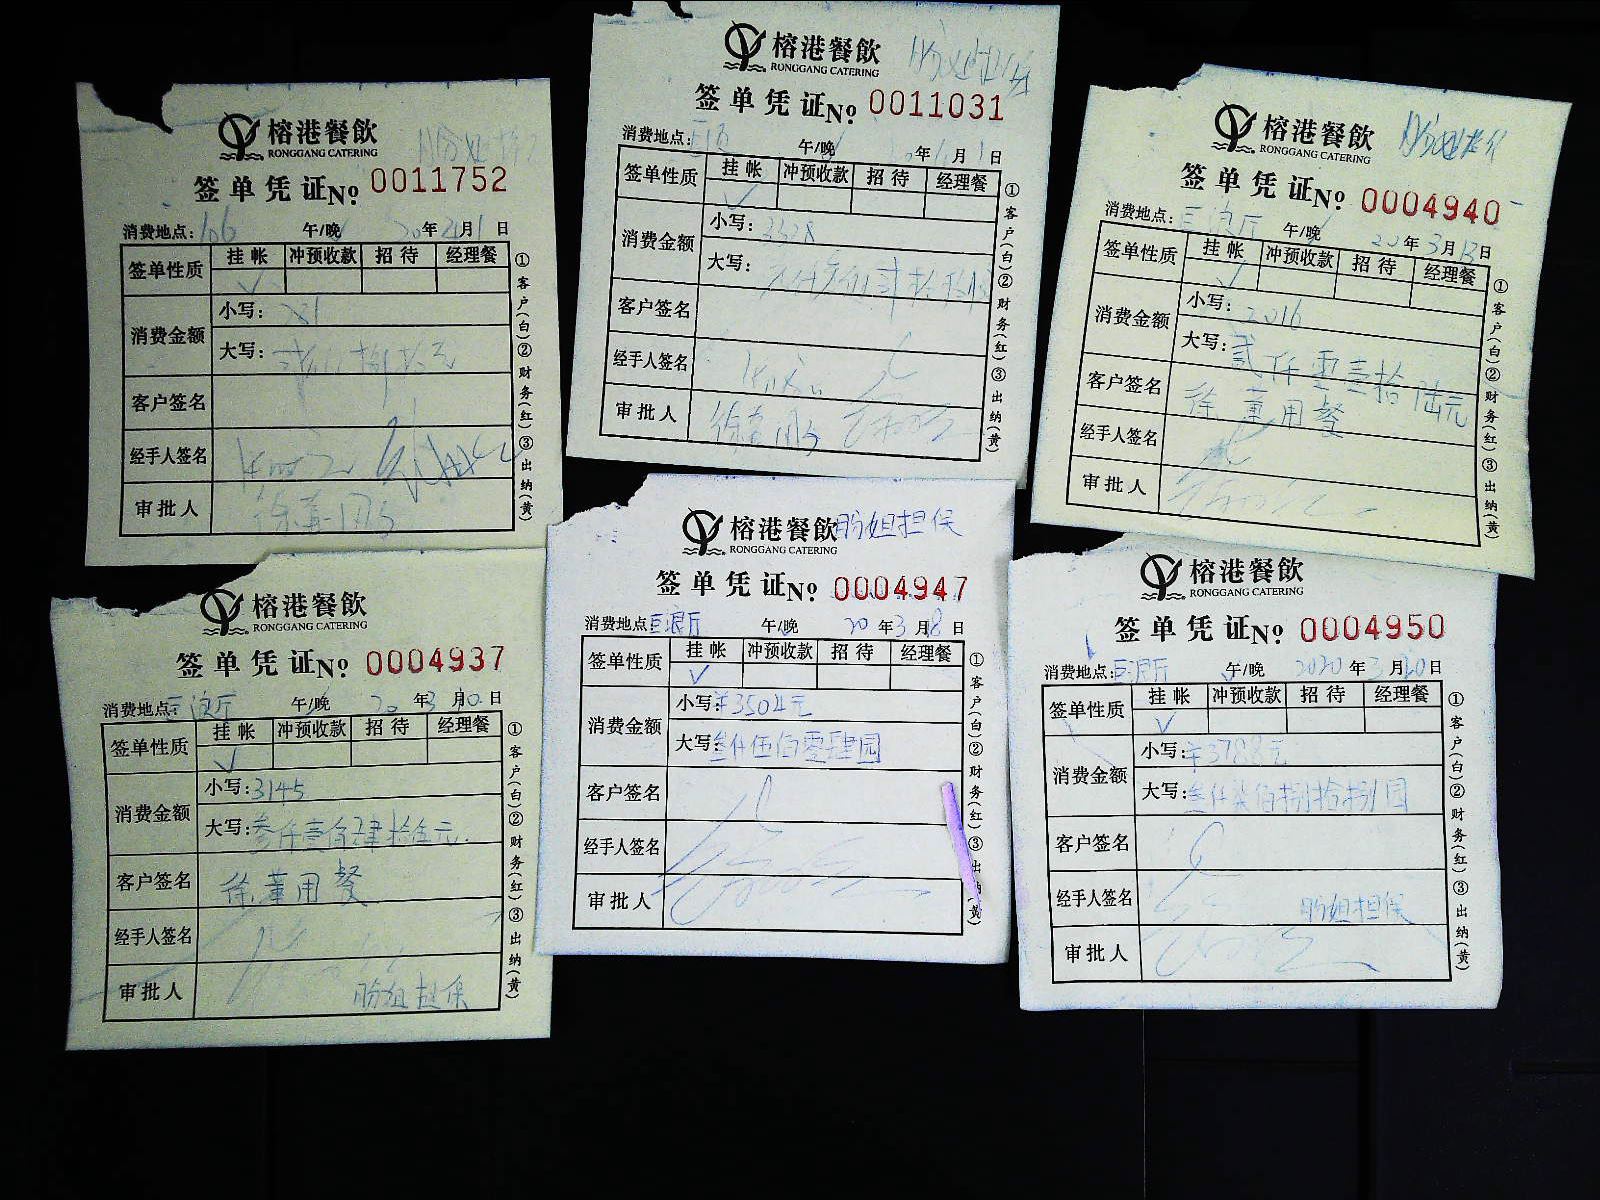 榕港餐飲
RONGGANG CATERING
签单凭证 No. 0011752
消费地点: 午/晚 年 月 日
签单性质 挂帐 冲预收款 招待 经理餐
✓
消费金额 小写:
大写:
客户签名
经手人签名
审批人
①客户(白)②财务(红)③出纳(黄)
榕港餐飲
RONGGANG CATERING
签单凭证 No. 0011031
消费地点: 午/晚 年 月 日
签单性质 挂帐 冲预收款 招待 经理餐
✓
消费金额 小写: 3328
大写:
客户签名
经手人签名
审批人
①客户(白)②财务(红)③出纳(黄)
榕港餐飲
RONGGANG CATERING
签单凭证 No. 0004940
消费地点: 巨浪厅 午/晚 20年3月13日
签单性质 挂帐 冲预收款 招待 经理餐
✓
消费金额 小写: 2016
大写: 贰仟零壹拾陆元
客户签名 徐董用餐
经手人签名
审批人
①客户(白)②财务(红)③出纳(黄)
榕港餐飲
RONGGANG CATERING
签单凭证 No. 0004937
消费地点: 巨浪厅 午/晚 20年3月10日
签单性质 挂帐 冲预收款 招待 经理餐
✓
消费金额 小写: 3145
大写: 叁仟壹佰肆拾伍元.
客户签名 徐董用餐
经手人签名
审批人 肦姐担保
①客户(白)②财务(红)③出纳(黄)
榕港餐飲 肦姐担保
RONGGANG CATERING
签单凭证 No. 0004947
消费地点: 巨浪厅 午/晚 20年3月18日
签单性质 挂帐 冲预收款 招待 经理餐
✓
消费金额 小写: ¥3504元
大写: 叁仟伍佰零肆园
客户签名
经手人签名
审批人
①客户(白)②财务(红)③出纳(黄)
榕港餐飲
RONGGANG CATERING
签单凭证 No. 0004950
消费地点: 巨浪厅 午/晚 2020年3月20日
签单性质 挂帐 冲预收款 招待 经理餐
✓
消费金额 小写: ¥3788元
大写: 叁仟柒佰捌拾捌园
客户签名
经手人签名 肦姐担保
审批人
①客户(白)②财务(红)③出纳(黄)